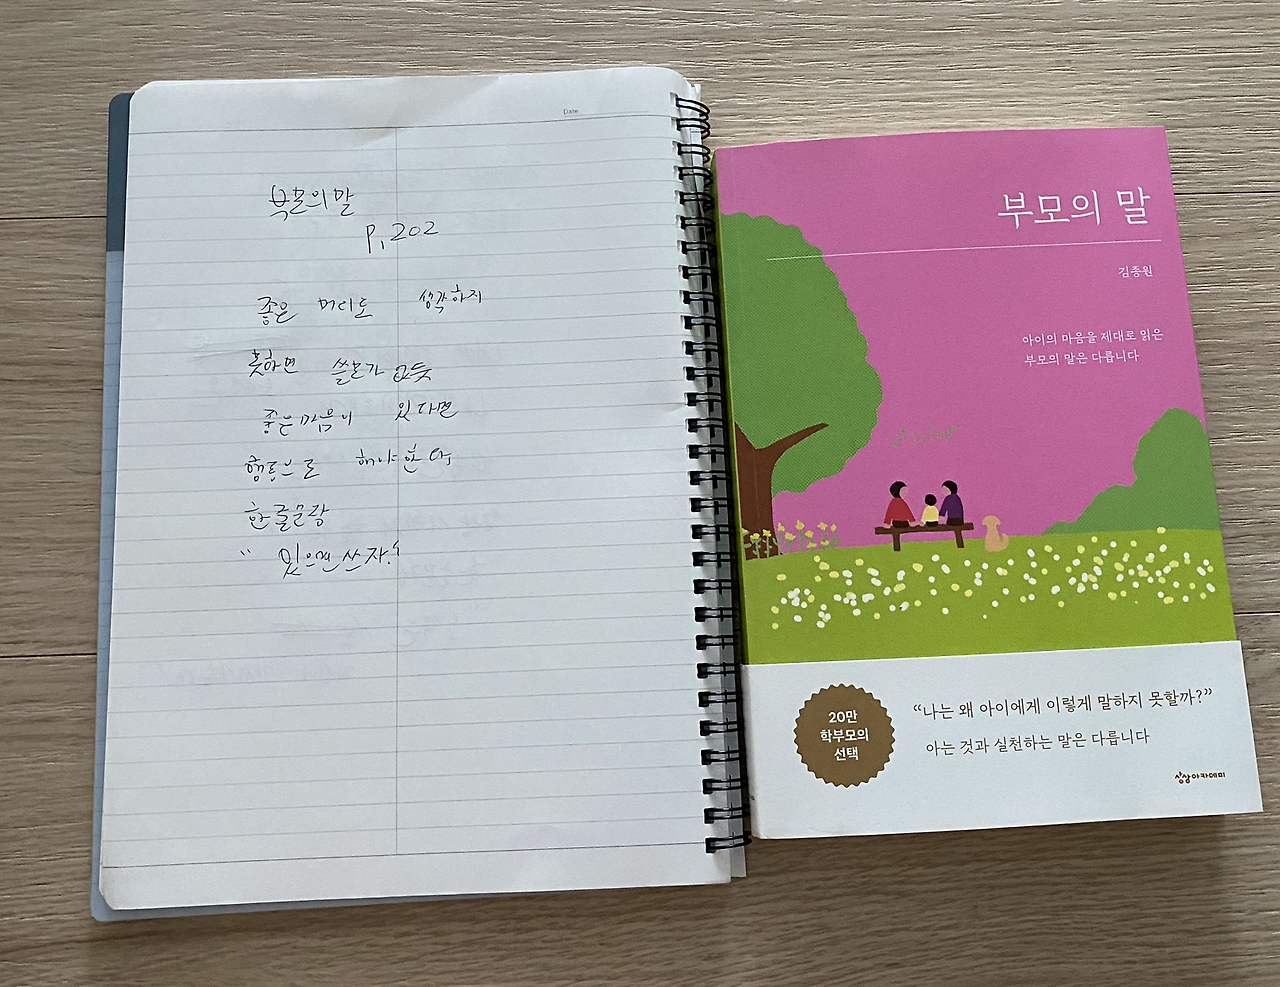 Date
부모의 말
P. 202
좋은 머리도 생각하지
못하면 쓸모가 없듯
좋은 마음이 있다면
행동으로 해야 한다
한 글 문장
" 있으면 쓰자."
부모의 말
김종원
아이의 마음을 제대로 읽은
부모의 말은 다릅니다
20만
학부모의
선택
“나는 왜 아이에게 이렇게 말하지 못할까?”
아는 것과 실천하는 말은 다릅니다
상상아카데미